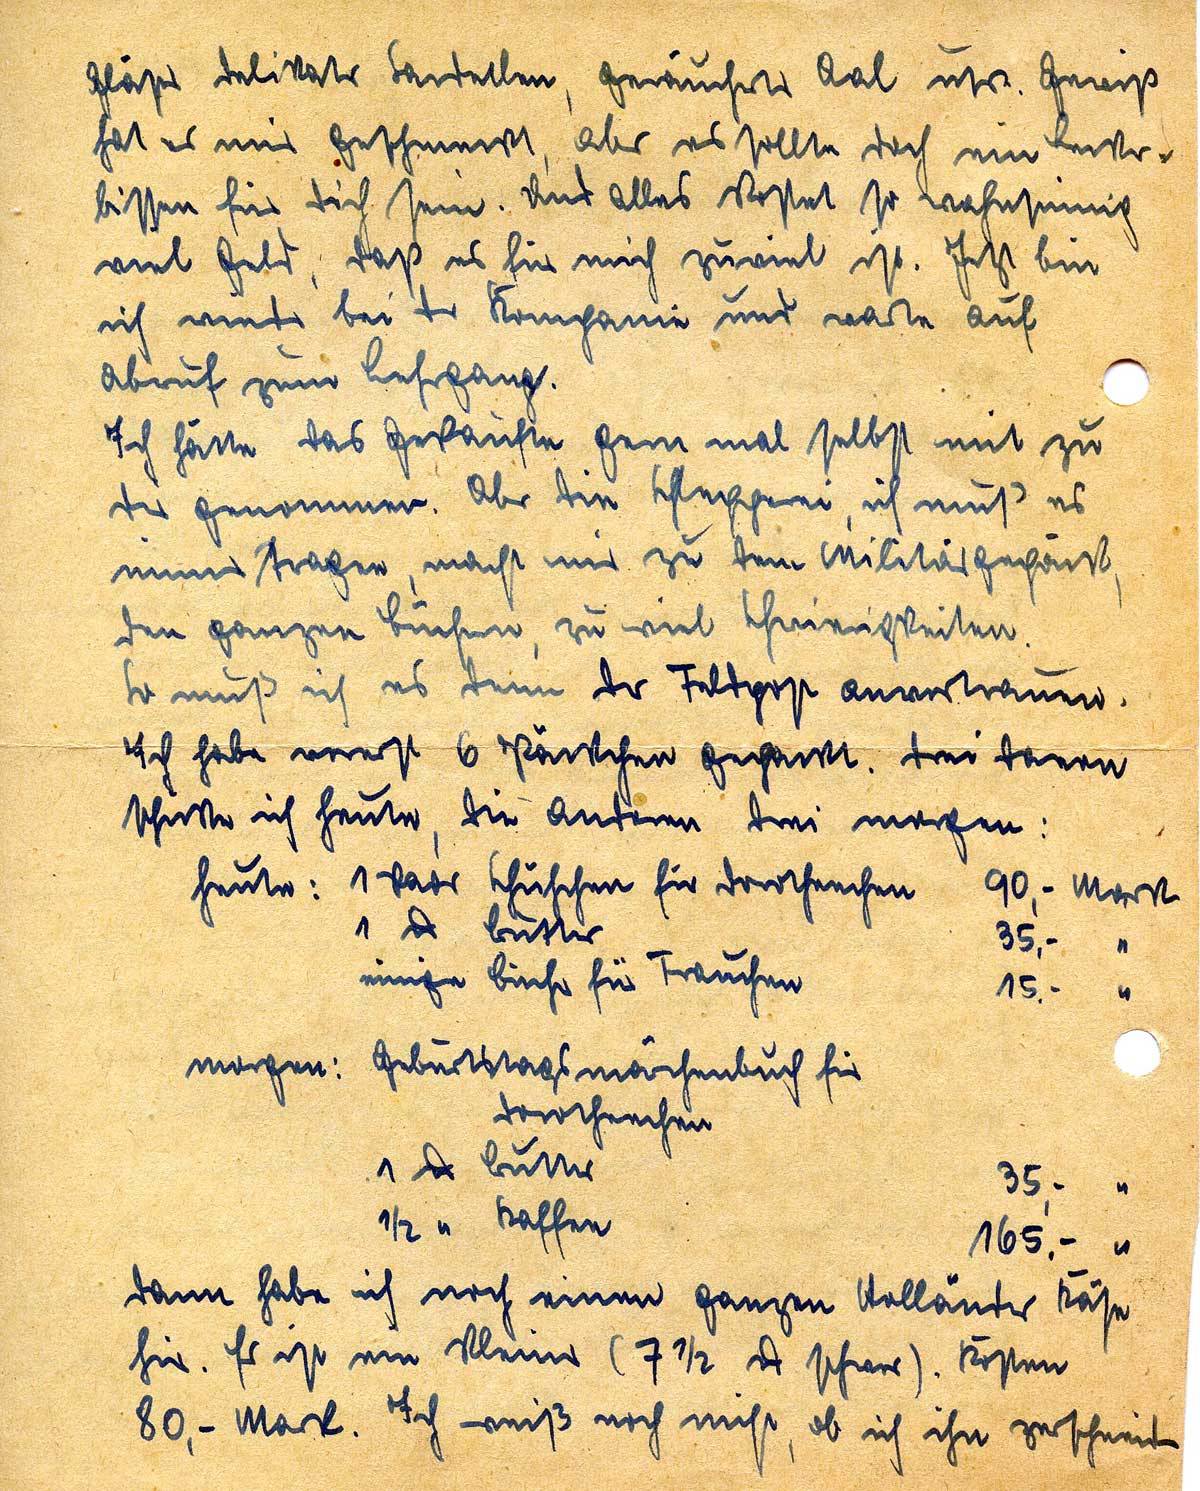 Gläser delikate Sardellen, geräucherter Aal usw. Gewiß
hat es mir geschmeckt, aber es sollte doch ein Lecker-
bissen für Dich sein. Und alles kostet so wahnsinnig
viel Geld, daß es für mich zuviel ist. Jetzt bin
ich wieder bei der Kompanie und warte auf
Abruf zum Lehrgang.
Ich hätte das Gekaufte gern mal selbst mit zu
Dir genommen. Aber die Schlepperei, ich muß es
immer tragen, macht mir zu dem Militärgepäck,
den ganzen Büchern, zu viel Schwierigkeiten.
So muß ich es denn der Feldpost anvertrauen.
Ich habe vorerst 6 Päckchen gepackt. Drei davon
schicke ich heute, die anderen drei morgen:
heute: 1 Paar Schühchen für Dorotheechen 90,- Mark
1 ℔ Butter 35,- "
einige Bücher für Frauchen 15.- "
morgen: Geburtstagsmärchenbuch für
Dorotheechen
1 ℔ Butter 35,- "
1/2 " Kaffee 165,- "
Dann habe ich noch einen ganzen Holländer Käse
hier. Er ist ein kleiner (7 1/2 ℔ schwer). Kosten
80,- Mark. Ich weiß noch nicht, ob ich ihn zerschneide